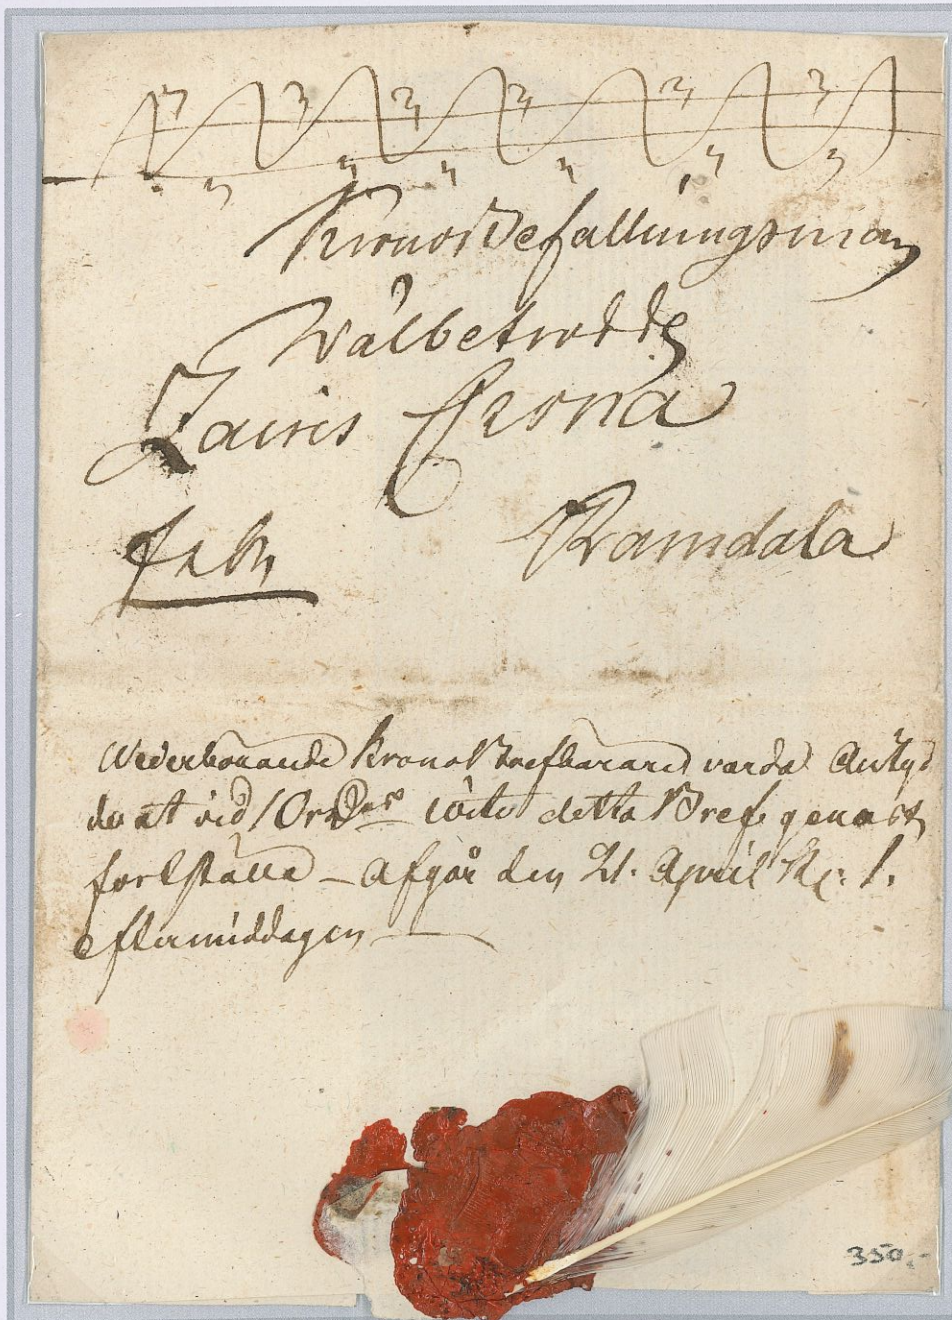 KronoBefallningsman
Wälbetrodde
Lauris Crona
Ramdala
Wederbörande KronoBrefbärare varda Antyd
de at vid 1 Ordr wite detta Bref genast
fortställa – Afgår den 21. April Kl: 1.
eftermiddagen
350,-